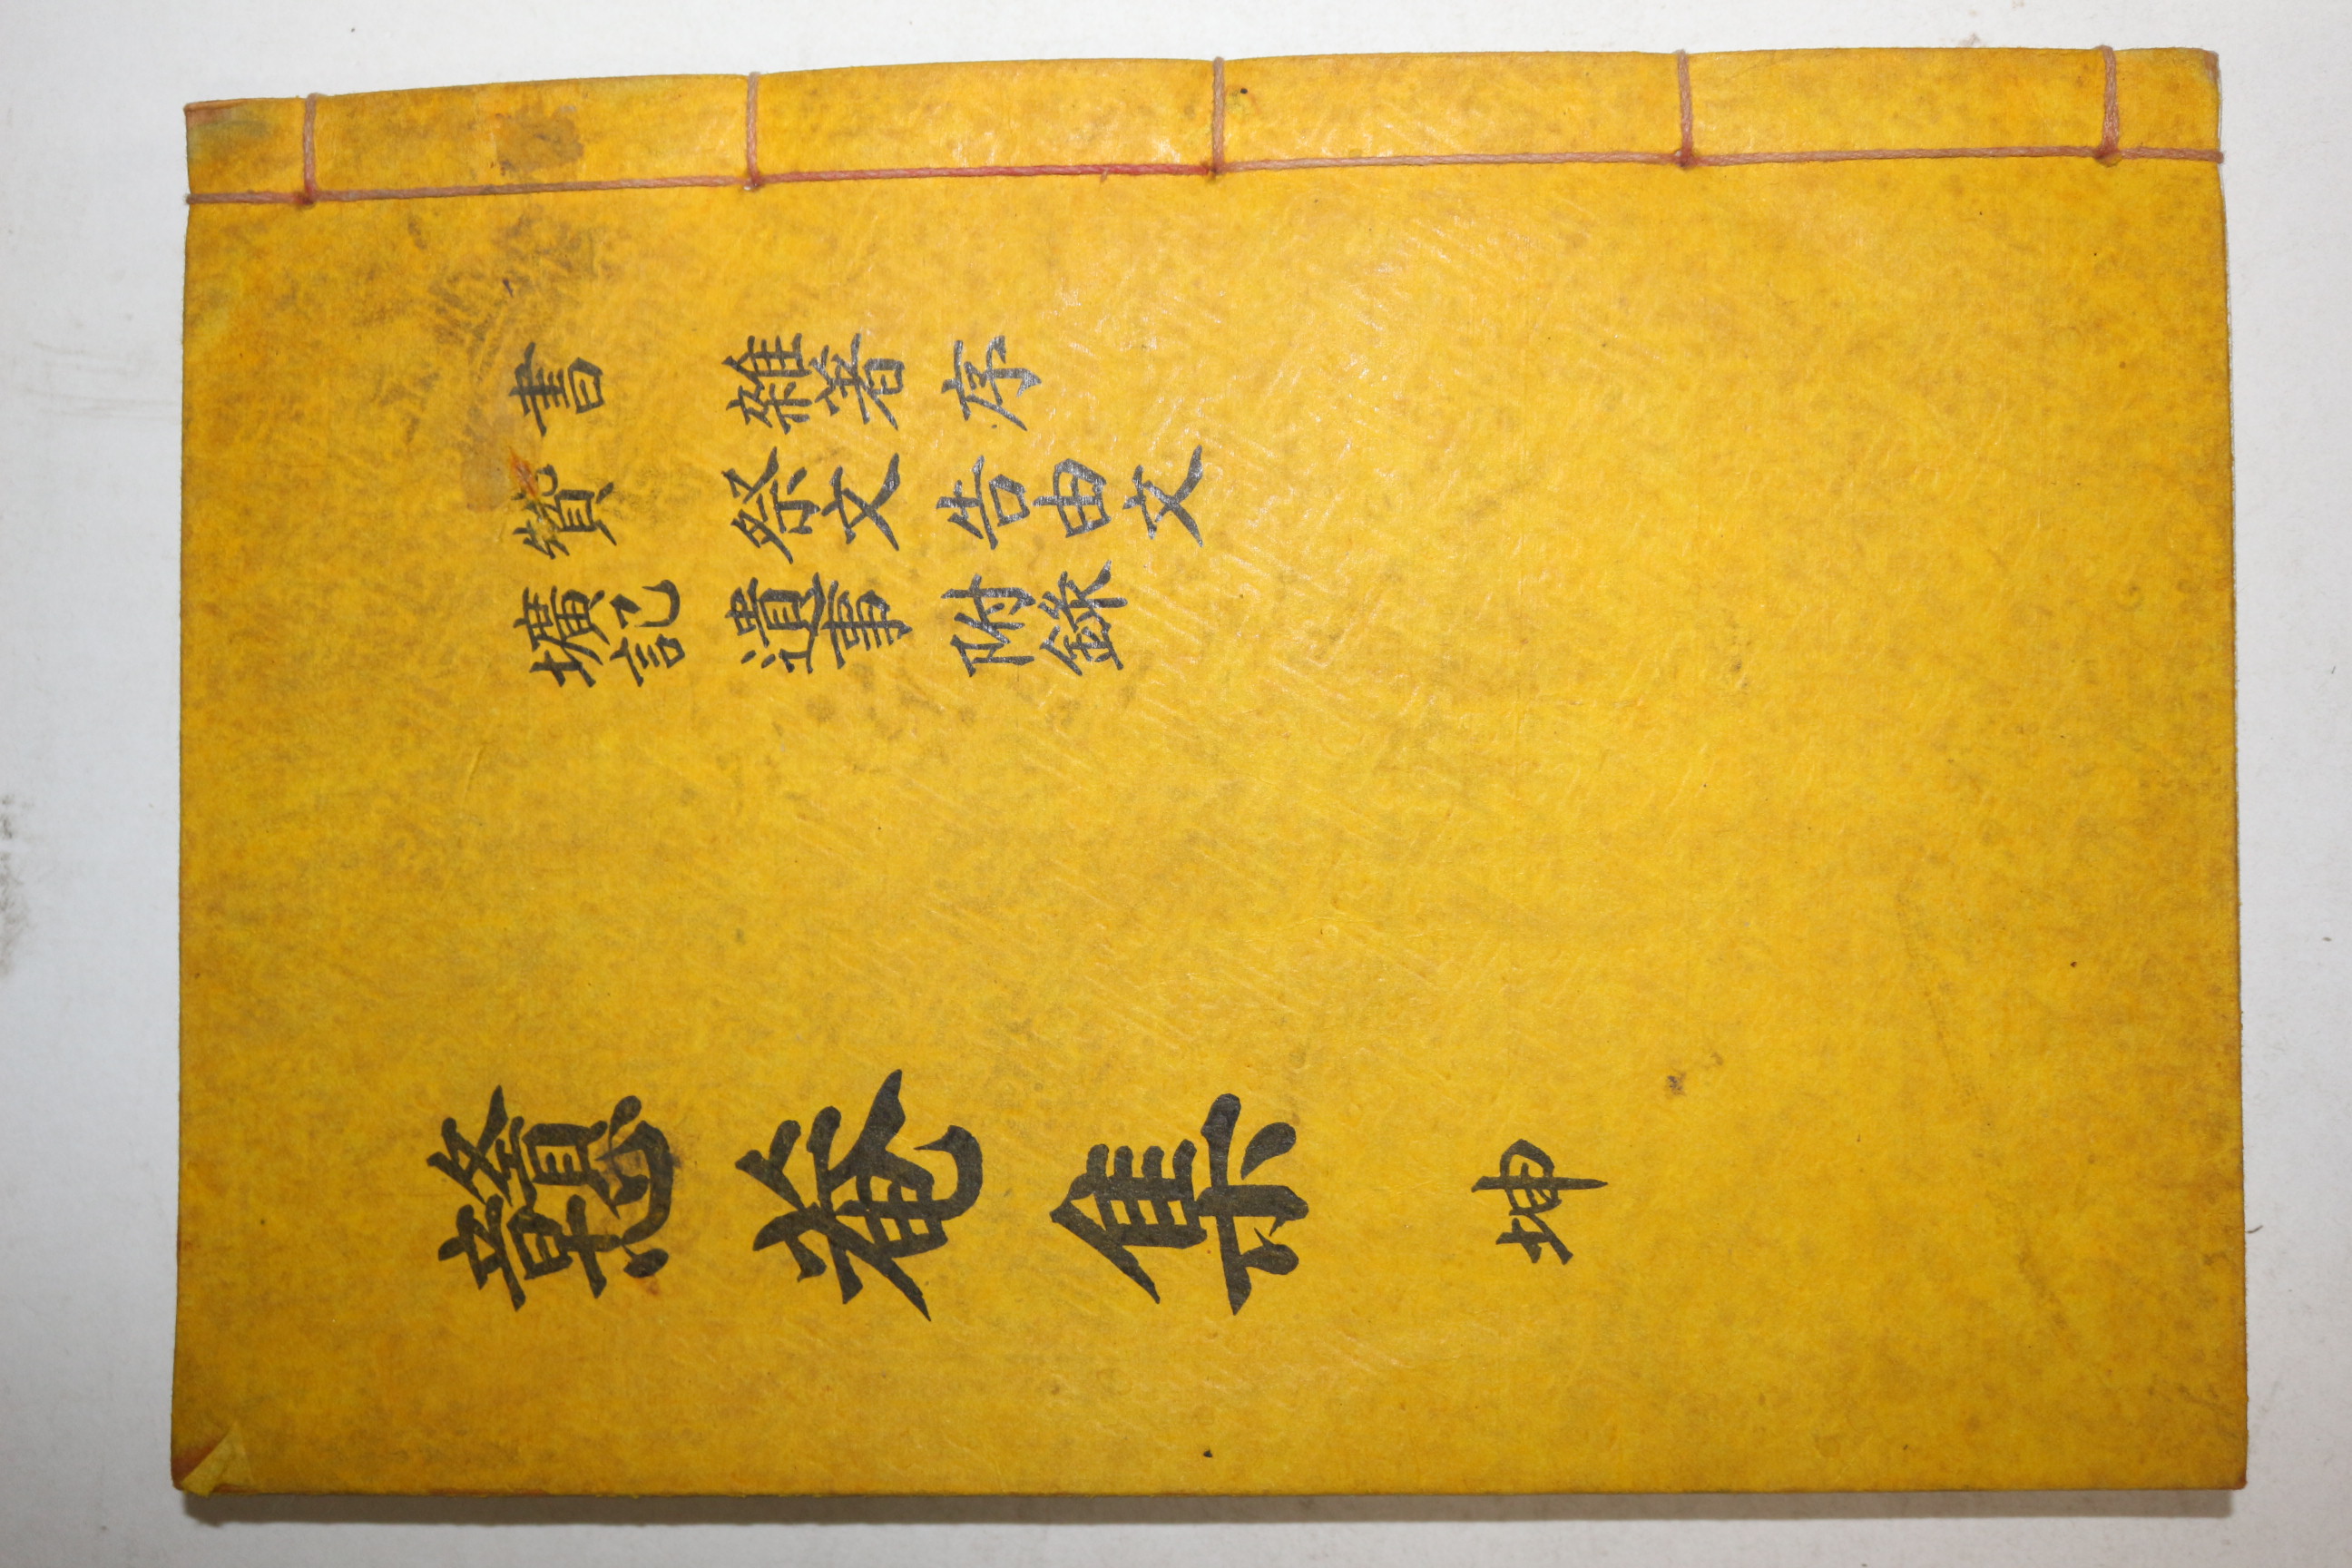 書 雜著 序
贊 祭文 告由文
壙記 遺事 附錄
戇菴集 坤